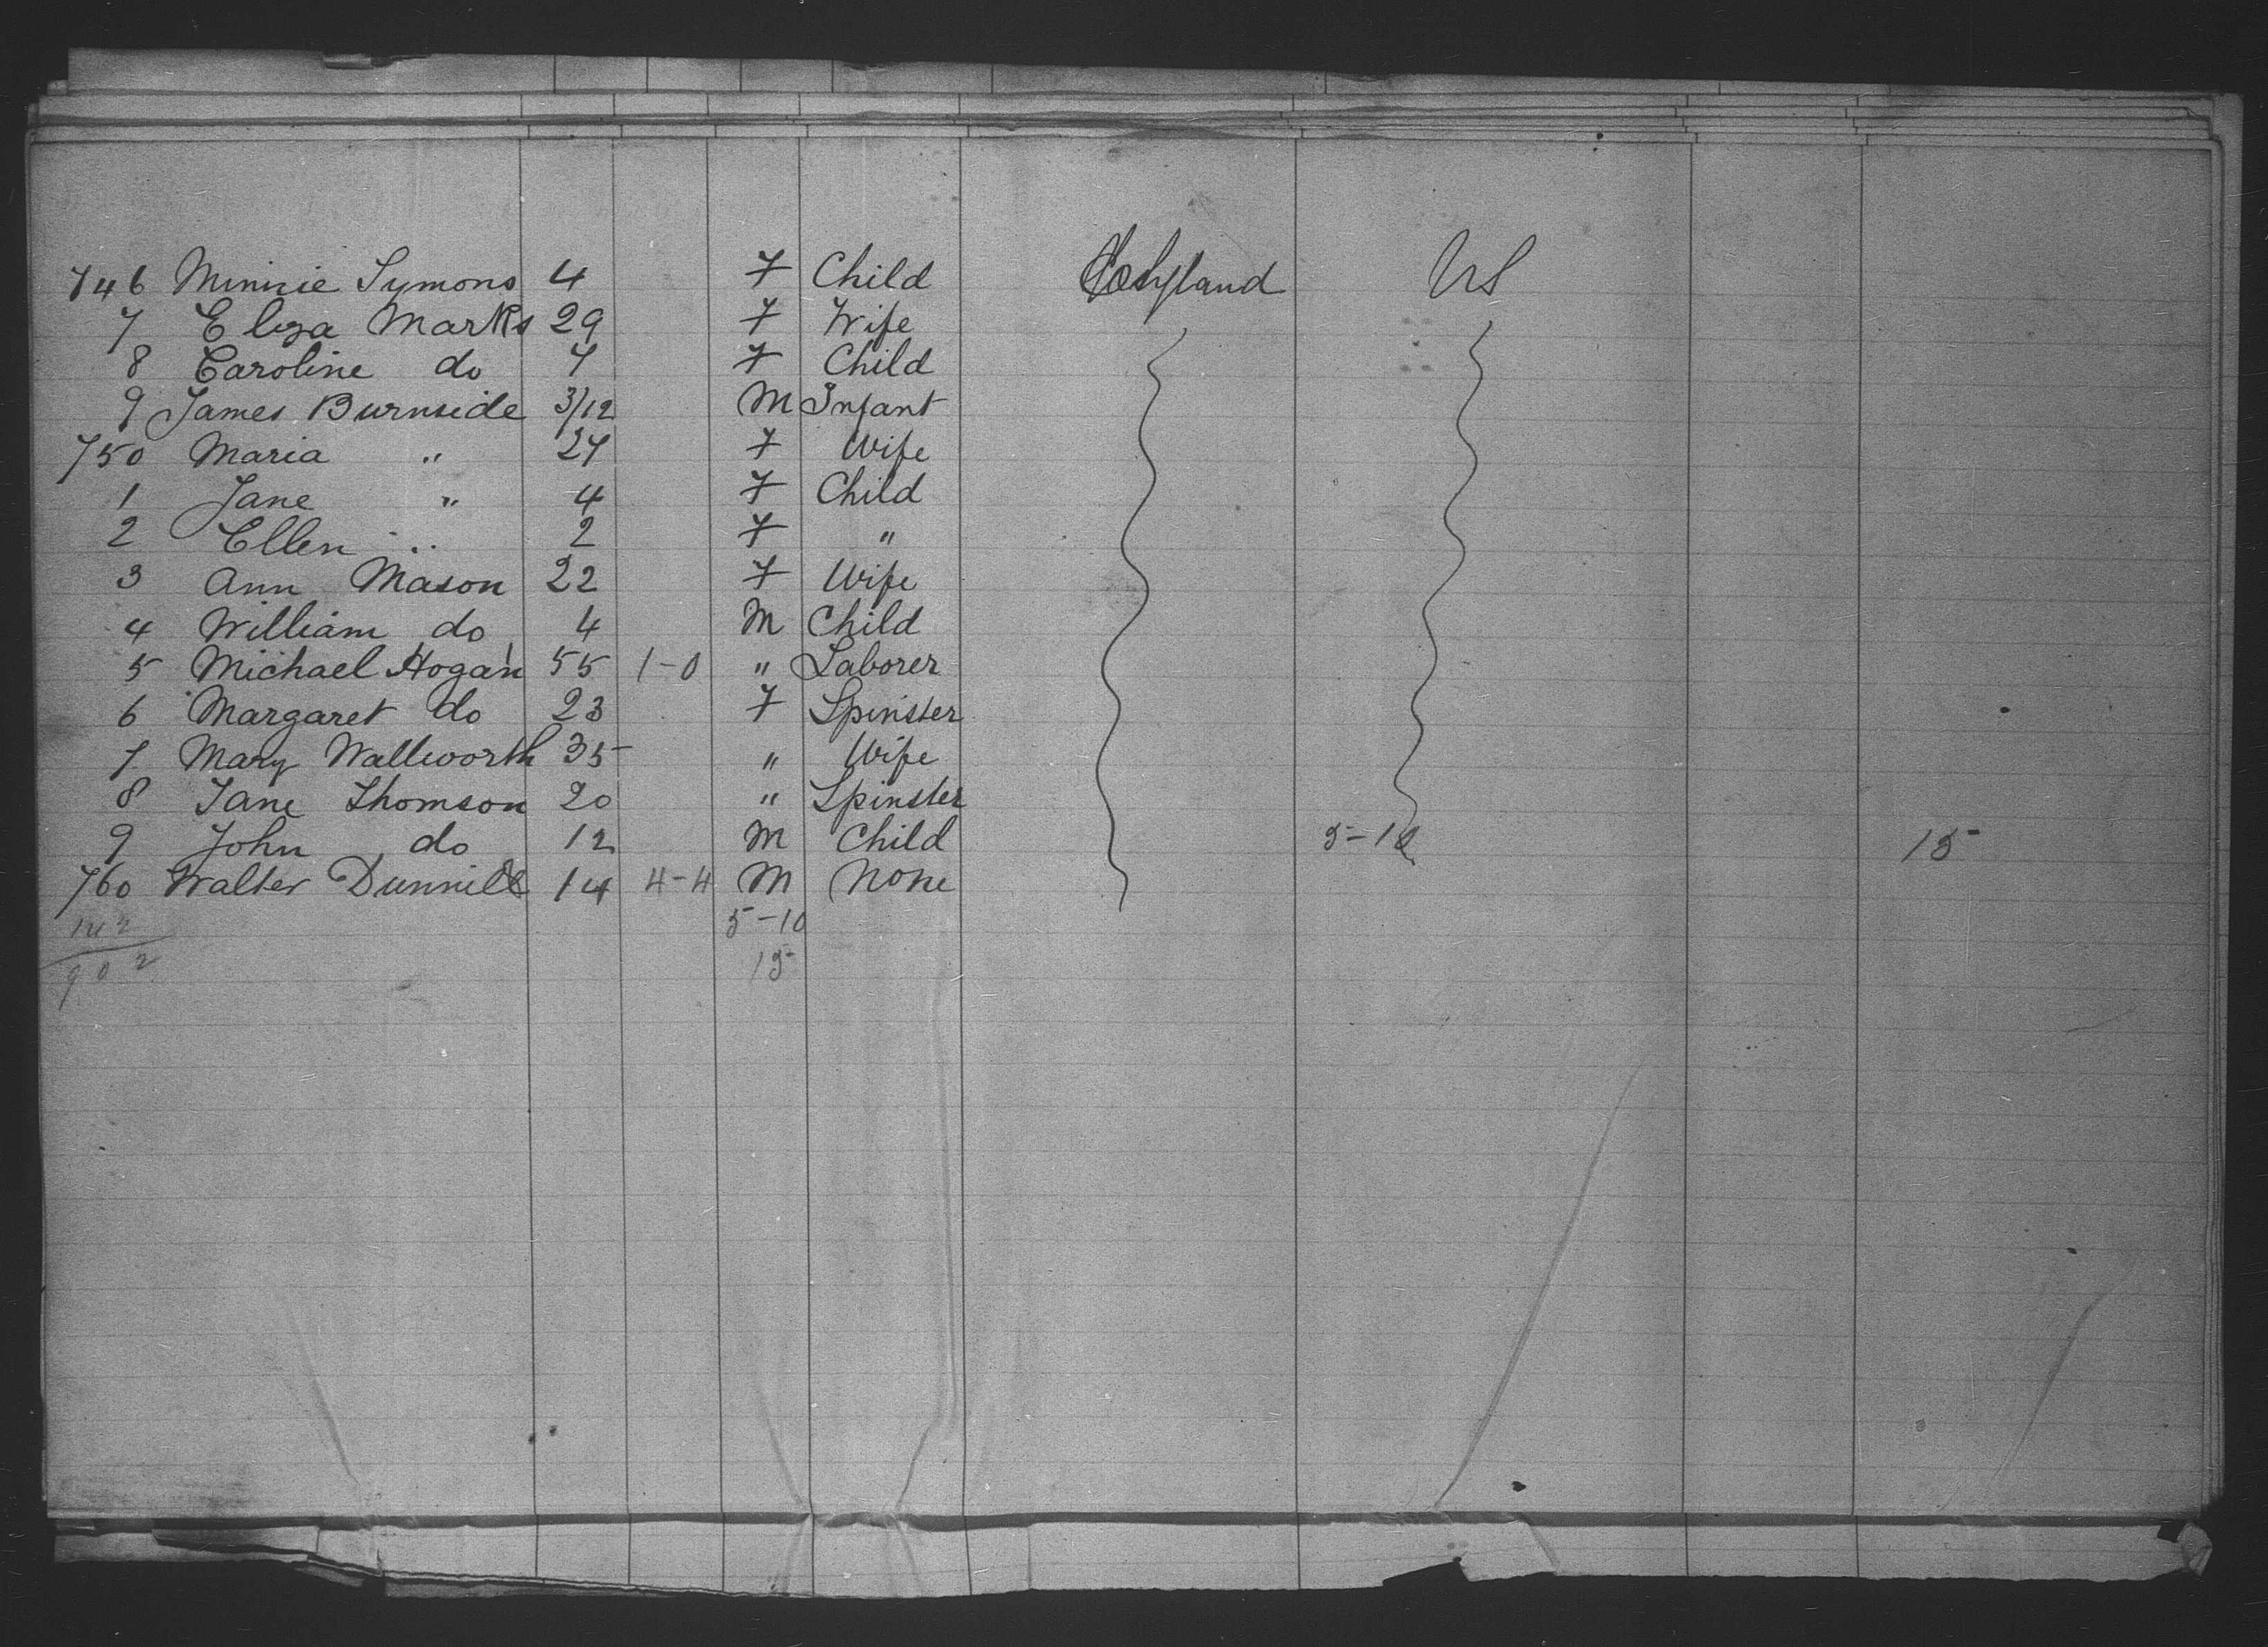 746 Minnie Symons 4 F Child England US
7 Eliza Marks 29 F Wife
8 Caroline do 7 F Child
9 James Burnside 3/12 M Infant
750 Maria " 27 F Wife
1 Jane " 4 F Child
2 Ellen " 2 F "
3 Ann Mason 22 F Wife
4 William do 4 M Child
5 Michael Hogan 55 1-0 " Laborer
6 Margaret do 23 F Spinster
7 Mary Wallworth 35 " Wife
8 Jane Thomson 20 " Spinster
9 John do 12 M Child 5-10 15
760 Walter 14 4-4 M None
142 5-10
902 15